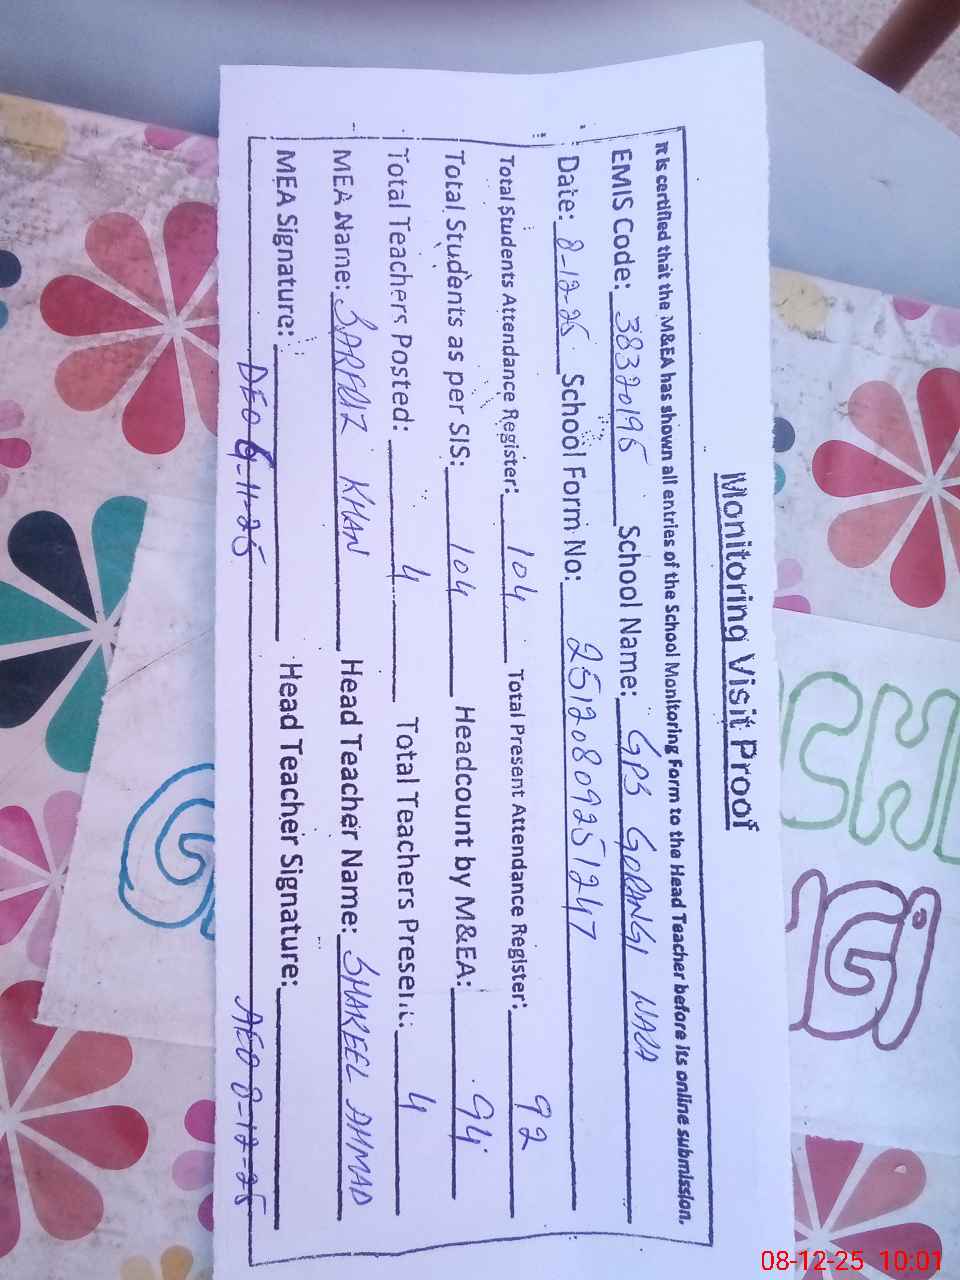 Monitoring Visit Proof
It is certified that the M&EA has shown all entries of the School Monitoring Form to the Head Teacher before its online submission.
EMIS Code: 38320195 School Name: GPS GORANGI WALA
Date: 8-12-25 School Form No: 25120809251247
Total Students Attendance Register: 104 Total Present Attendance Register: 92
Total Students as per SIS: 104 Headcount by M&EA: 94
Total Teachers Posted: 4 Total Teachers Present: 4
MEA Name: SARFRAZ KHAN Head Teacher Name: SHAKEEL AHMAD
MEA Signature: Head Teacher Signature:
DEO 6-11-25 AEO 8-12-25
CH
GI
G
08-12-25 10:01